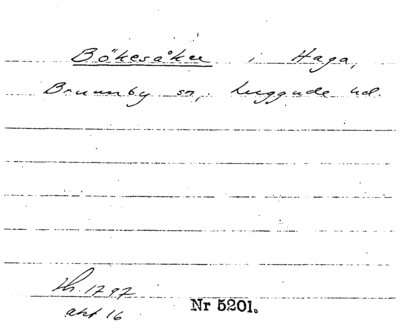 Bökesåker i Haga,
Brunnby sn, Luggude hd.
Sk. 1797
akt 16
Nr 5201.